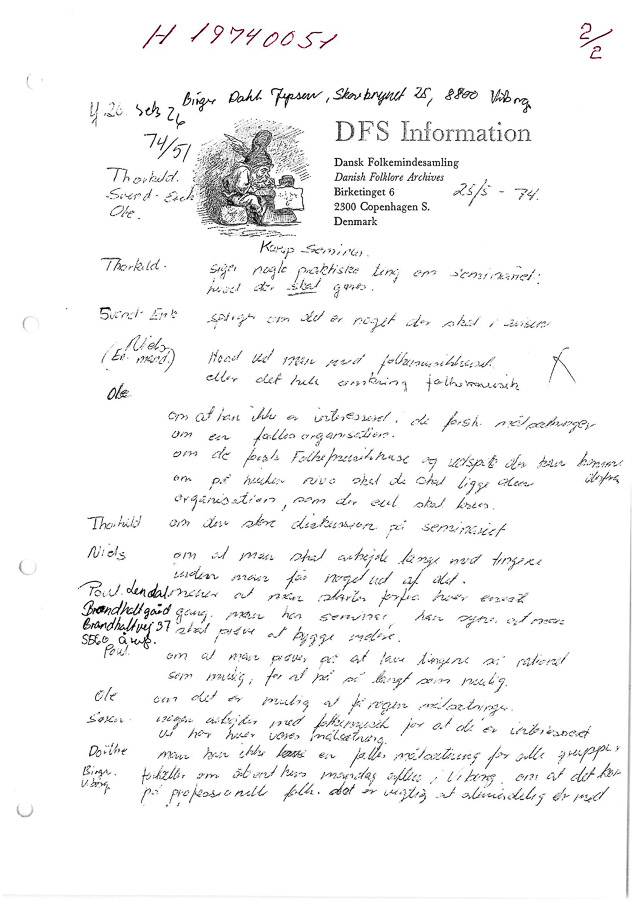 H 19740051
2/2
Birger Dahl Jepsen, Skovbrynet 25, 8800 Viborg
74/51
DFS Information
Dansk Folkemindesamling
Danish Folklore Archives
Birketinget 6
2300 Copenhagen S.
Denmark
25/5 - 74.
Thorkild.
Svend-Erik
Ole.
Karup Seminar.
Thorkild. siger nogle praktiske ting om seminariet.
hvad der skal gøres.
Svend Erik spørger om det er noget der skal i avisen
Niels
Hvad vil man med folkemusikhuset
eller det hele omkring folkemusik
Ole
om at han ikke er interesseret i de forsk. målsætninger
om en fælles organisation.
om de forsk. Folkemusikhuse og udspil der kan komme
derfra
om på hvilken niveau skal de skal ligge den
organisation, som der evt. skal laves.
Thorkild om den store diskussion på seminariet
Niels om at man skal arbejde længe med tingene
inden man får noget ud af det.
Poul Lendal mener at man starter forfra hver eneste
Brandholtgård gang man har seminar, han synes at man
Brandholtvej 37 skal prøve at bygge videre.
5560 Årup.
Poul. om at man prøver på at lave tingene så rationel
som mulig, for at nå så langt som mulig.
Ole om det er mulig at få nogen målsætninger
Søren. nogen arbejder med folkemusik for at de er interesseret
vi har hver vores målsætning.
Dorthe man kan ikke lave en fælles målsætning for alle grupper
Birger. Viborg fortæller om åbent hus mandag aften i Viborg. om at det kører
på professionelle folk. det er vigtig at almindelig er med